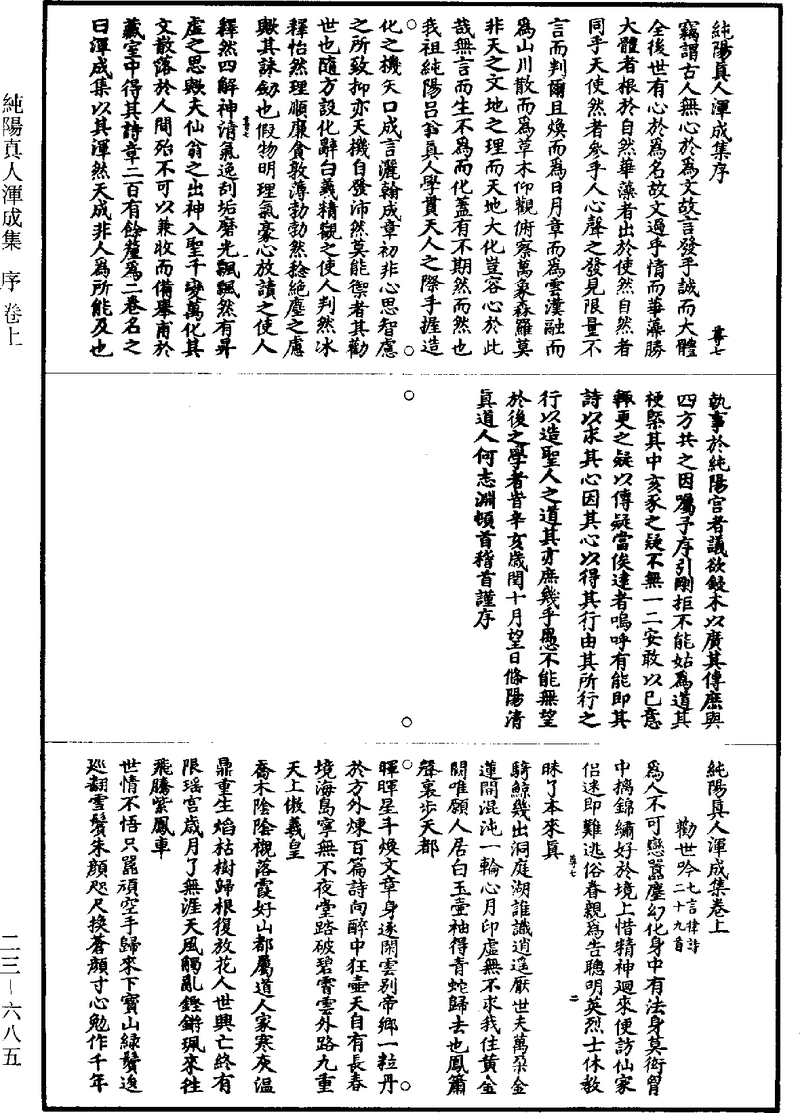 純陽真人渾成集序
竊謂古人無心於為文故言發乎誠而大體
全後世有心於為名故文過乎情而華藻勝
大體者根於自然華藻者出於使然自然者
同乎天使然者參乎人心聲之發見限量不
言而判爾且煥而為日月章而為雲漢融而
為山川散而為草木仰觀俯察萬象森羅莫
非天之文地之理而天地大化豈容心於此
哉無言而生不為而化蓋有不期然而然也
我祖純陽呂翁真人學貫天人之際手握造
化之機矢口成言灑翰成章初非心思智慮
之所致抑亦天機自發沛然莫能禦者其勸
世也隨方設化辭白義精觀之使人判然冰
釋怡然理順廉貪敦薄勃勃然稔絕塵之慮
歟其詠劒也假物明理氣豪心放讀之使人
釋然四解神清氣逸刮垢磨光飄飄然有昇
虛之思歟夫仙翁之出神入聖千變萬化其
文散落於人間殆不可以兼收而備舉甫於
藏室中得其詩章二百有餘釐為二卷名之
曰渾成集以其渾然天成非人為所能及也
尊七
執事於純陽宮者議欲鋟木以廣其傳庶與
四方共之因囑予序引剛拒不能姑為道其
梗槩其中亥豕之疑不無一二安敢以己意
輒更之疑以傳疑當俟達者嗚呼有能即其
詩以求其心因其心以得其行由其所行之
行以造聖人之道其亦庶幾乎愚不能無望
於後之學者昔辛亥歲閏十月望日條陽清
真道人何志淵頓首稽首謹序
純陽真人渾成集卷上
勸世吟七言律詩二十九首
為人不可戀囂塵幻化身中有法身莫衒胷
中摛錦繡好於境上惜精神迴來便訪仙家
侶迷即難逃俗眷親為告聰明英烈士休教
昧了本來真
騎鯨幾出洞庭湖誰識逍遥厭世夫萬朶金
蓮開混沌一輪心月印虛無不求我住黃金
闕唯願人居白玉壷袖得青蛇歸去也鳳簫
聲裏步天都
暉暉星斗煥文章身逐閑雲别帝鄉一粒丹
於方外煉百篇詩向醉中狂壷天自有長春
境海島寧無不夜堂踏破碧霄雲外路九重
天上傲羲皇
喬木陰陰襯落霞好山都屬道人家寒灰温
鼎重生焰枯樹歸根復放花人世興亡終有
限瑶宫歳月了無涯天風觸亂鏗鏘珮來往
飛騰紫鳳車
世情不悟只嚚頑空手歸來下寶山綠鬢逡
巡翻雪鬢朱顔咫尺換蒼顔寸心勉作千年
純陽真人渾成集 序 卷上
二三－六八五